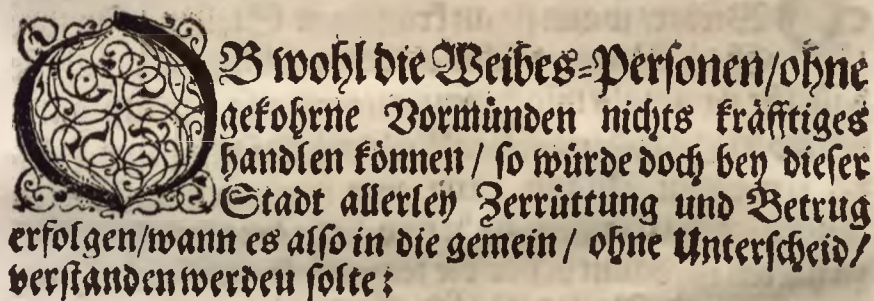 OB wohl die Weibes-Personen/ohne
gekohrne Vormünden nichts kräfftiges
handlen können / so würde doch bey dieser
Stadt allerley Zerrüttung und Betrug
erfolgen/wann es also in die gemein / ohne Unterscheid/
verstanden werden solte: